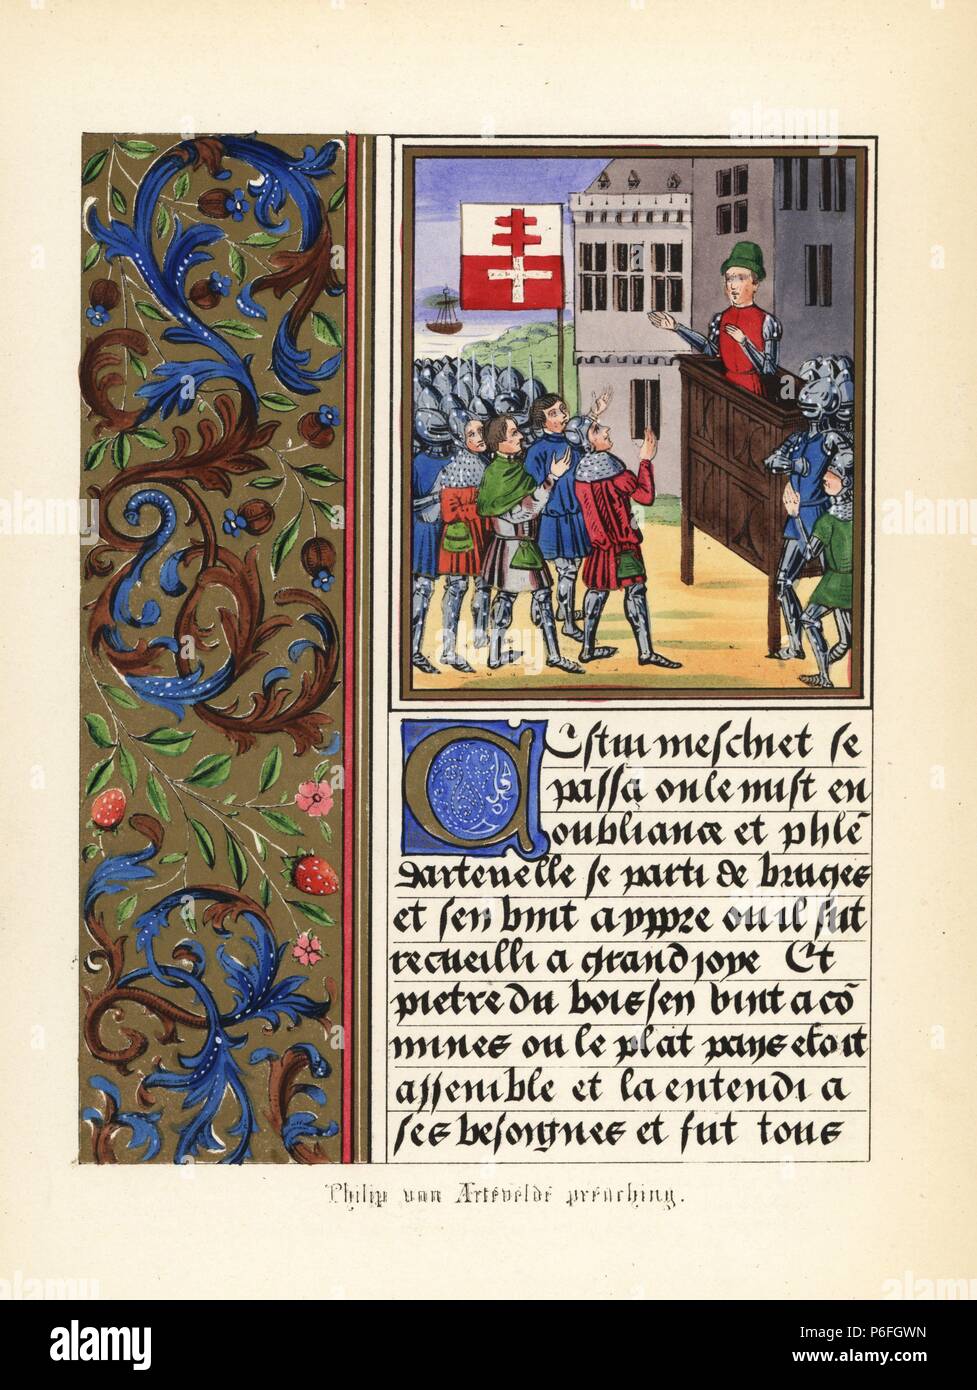 Cestui meschiet se
passa on le mist en
oubliance et phle
dartevelle se parti de bruges
et sen vint a yppre ou il fut
recueilli a grand joye Et
pietre du boissen vint a cō
mines ou le plat pays estoit
assemble et la entendi a
ses besongnes et fut tous
Philip van Artevelde preaching.
alamy
Image ID: P6FGWN
www.alamy.com